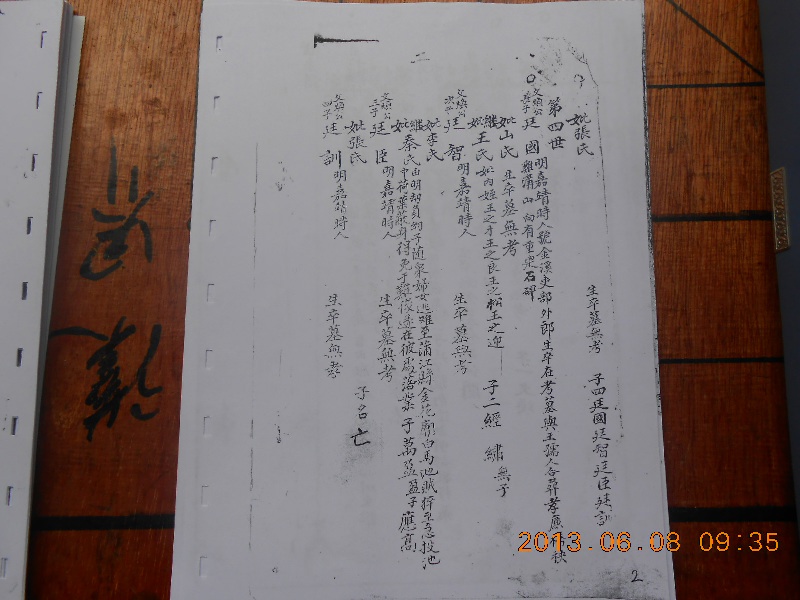 二
妣張氏 生卒墓無考 子四廷國廷智廷臣廷訓
第四世
文煥公長子 廷國 明嘉靖時人號金溪吏部外郎生卒在考墓與王孺人合葬孝
山向有重梁石碑
妣山氏 生卒墓無考
繼妣王氏 如內姪王之才王之良王之松王之迎 子二經 繡無子
文煥公次子 廷智 明嘉靖時人 生卒墓無考
妣李氏
繼妣秦氏 由明幼負幼子隨眾婦女逃難至蒲江縣金花廟白馬池賊猝至急投池
中荷葉蔽身得免于難後遂在彼處落業 子萬益益子應高
文煥公三子 廷臣 明嘉靖時人 生卒墓無考
妣張氏 子名亡
文煥公四子 廷訓 明嘉靖時人 生卒墓無考
2
2013.06.08 09:35